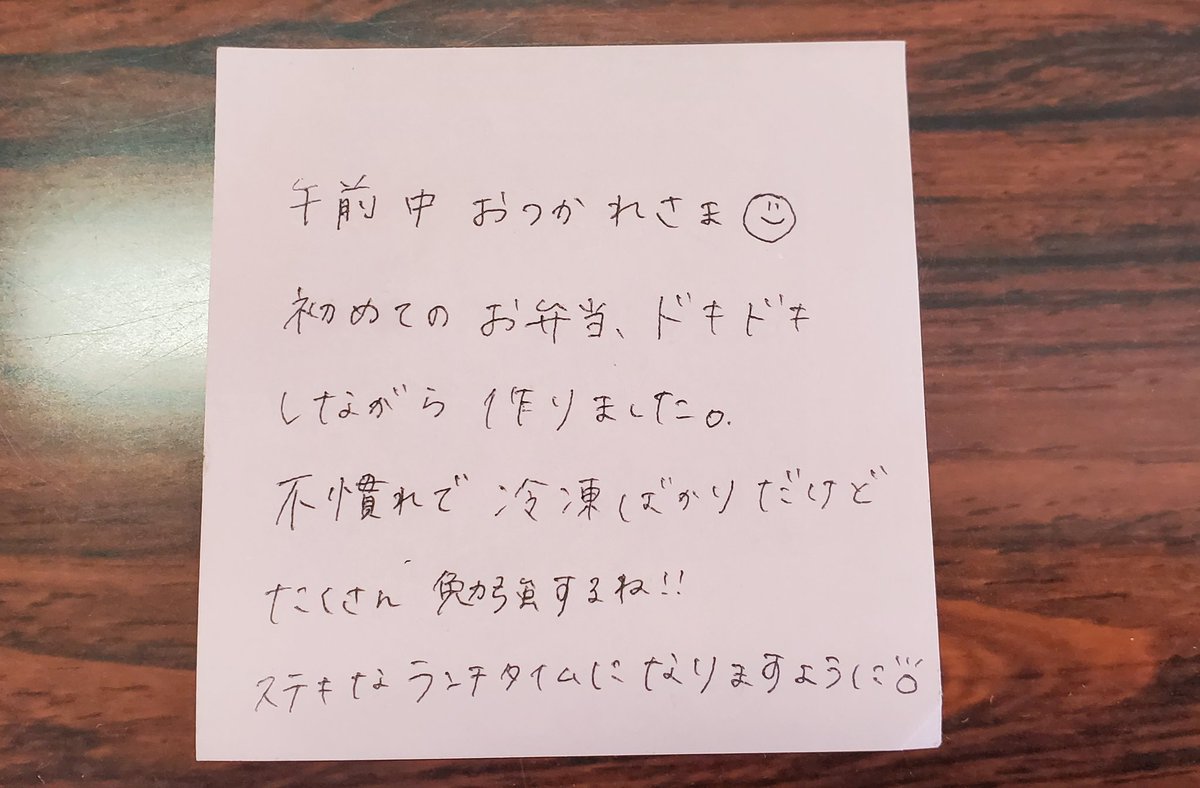 午前中 おつかれさま
初めての お弁当、ドキドキ
しながら 作りました。
不慣れで 冷凍ばかりだけど
たくさん 勉強するね!!
ステキなランチタイムになりますように